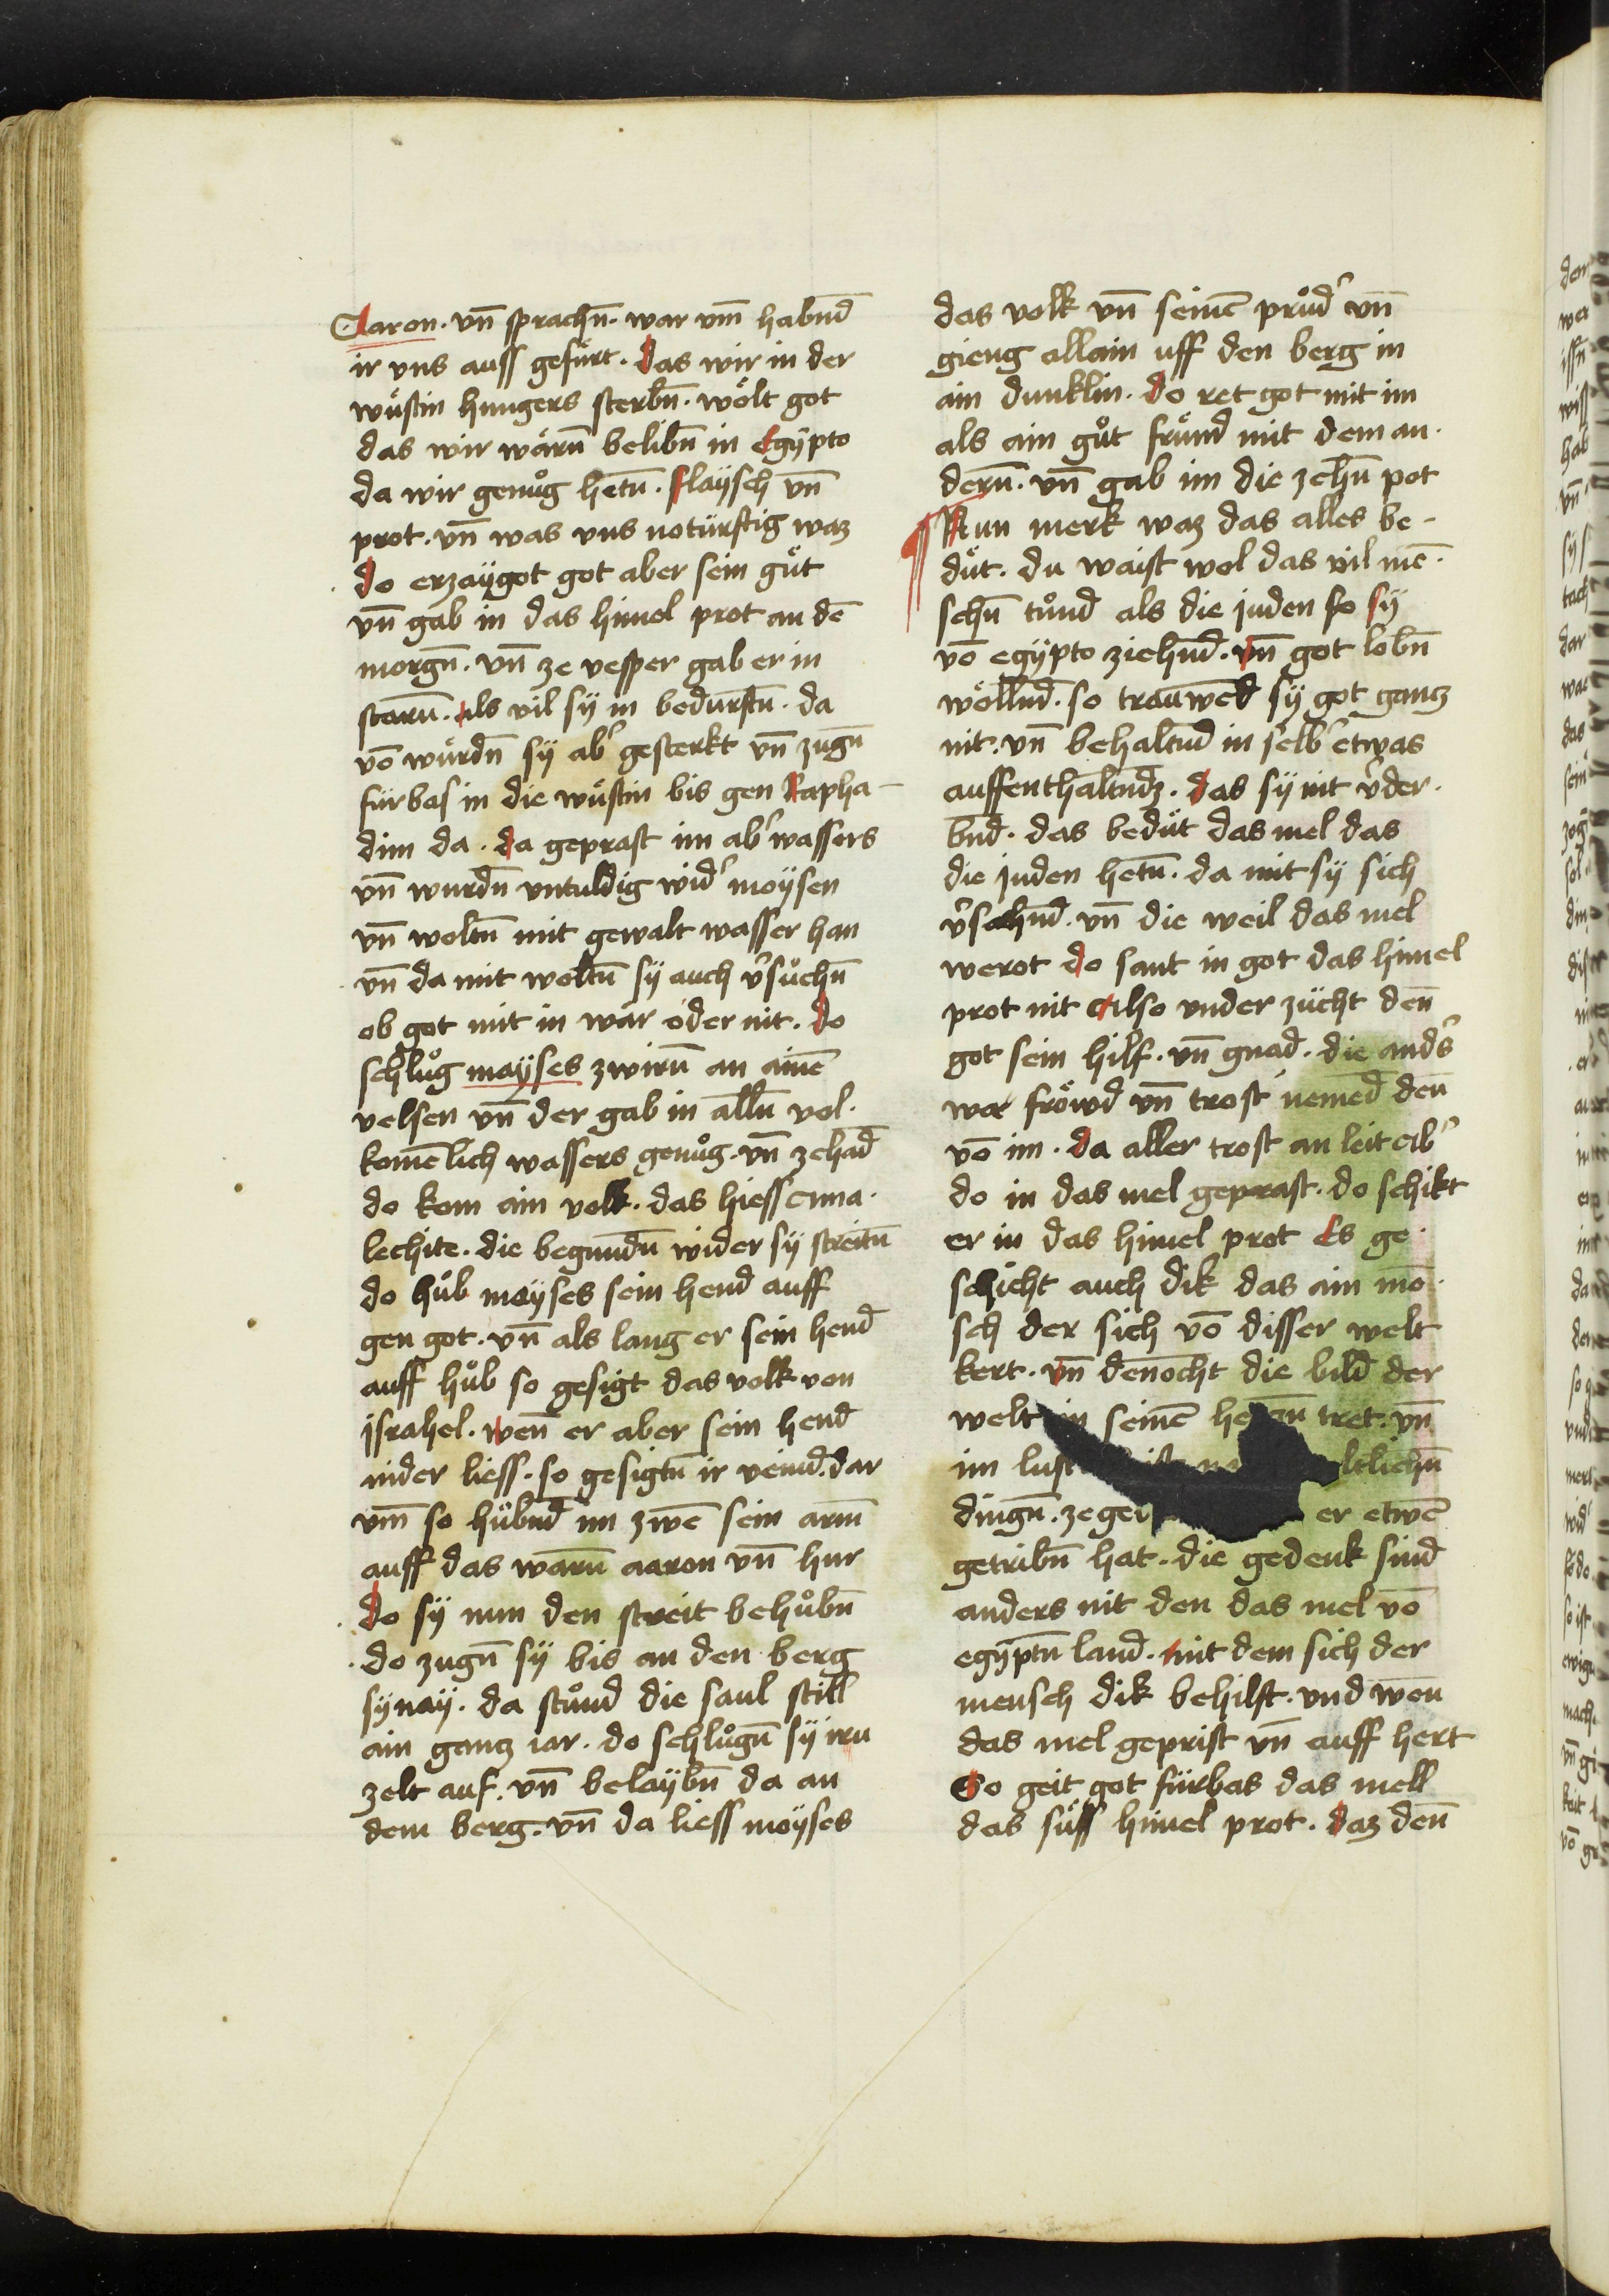 Aaron. vn̄ sprachn̄. war vm̄ habnd̄
ir vns auss gefürt. Das wir in der
wuͤstin hungers sterbn̄. woͤlt got
das wir waͤrn̄ belibn̄ in Egÿpto
da wir genuͦg hetn̄. flaÿsch vn̄
prot. vn̄ was vns notürftig waz
do erzaÿgot got aber sein guͤt
vn̄ gab in das himel prot an dē
morgn̄. vn̄ ze vesper gab er in
starn̄. Als vil sÿ in bedurftn̄. da
vō wuͤrdn̄ sÿ ab' gesterkt vn̄ zugn̄
fürbas in die wuͤstin bis gen Rapha-
dim da. da geprast im ab' wassers
vn̄ wurdn̄ vntuldig wid' moÿsen
vn̄ woltn̄ mit gewalt wasser han
vn̄ da mit woltn̄ sÿ auch v'suͦchn̄
ob got mit in wär oder nit. do
schluͦg maÿses zwirn̄ an ainē
velsen vn̄ der gab in alln̄ vol-
komēlich wassers genuͦg. vn̄ zehād
do kom ain volk. das hiess ama-
lechite. die begundn̄ wider sÿ streitn̄
do huͦb moÿses sein hend auff
gen got. vn̄ als lang er sein hend
auff huͦb so gesigt das volk von
israhel. wen̄ er aber sein hend
nider liess. so gesigtn̄ ir veind. dar
vm̄ so hübnd̄ im zwē sein arm̄
auff das warn̄ aaron vn̄ hur
Do sÿ nun den streit behuͦbn̄
do zugn̄ sÿ bis an den berg
sÿnaÿ. da stuͦnd die saul still
ain ganz iar. do schluͦgn̄ sÿ iru
zelt auf. vn̄ belaÿbn̄ da an
dem berg. vn̄ da liess moÿses
das volk vn̄ seinē pruͦd' vn̄
gieng allain uff den berg in
ain dunklin. do ret got mit im
als ain guͦt fruͤnd mit dem an-
dern̄. vn̄ gab im die zehn̄ pot
Nun merk waz das alles be-
duͤt. du waist wol das vil mē-
schn̄ tuͦnd als die juden so sÿ
vō egÿpto ziehnd̄. vn̄ got lobn̄
woͤllnd̄. so trauwēd sÿ got ganz
nit. vn̄ behaltnd̄ in selb' etwas
auffenthaltndz. das sÿ nit v'der-
bnd̄. das beduͤt das mel das
die juden hetn̄. da mit sÿ sich
v'sahnd̄. vn̄ die weil das mel
werot do sant in got das himel
prot nit Also vnder zücht den̄
got sein hilf. vn̄ gnad. die anders
war froͤwd vn̄ trost nemēd den̄
vō im. da aller trost an leit ab'
do in das mel geprast. do schikt
er in das himel prot Es ge-
schicht auch dik das ain mē-
sch der sich vō disser welt
kert. vn̄ denocht die bild der
welt in seinē he zn̄ tret. vn̄
im lust ltlichn̄
dingn̄. ze er etwē
getribn̄ hat. die gedenk sind
anders nit den das mel vō
egÿptn̄ land. mit dem sich der
mensch dik behilft. vnd wen̄
das mel geprist vn̄ auff hert
So geit got fürbas das mell
das suͤss himel prot. daz den̄